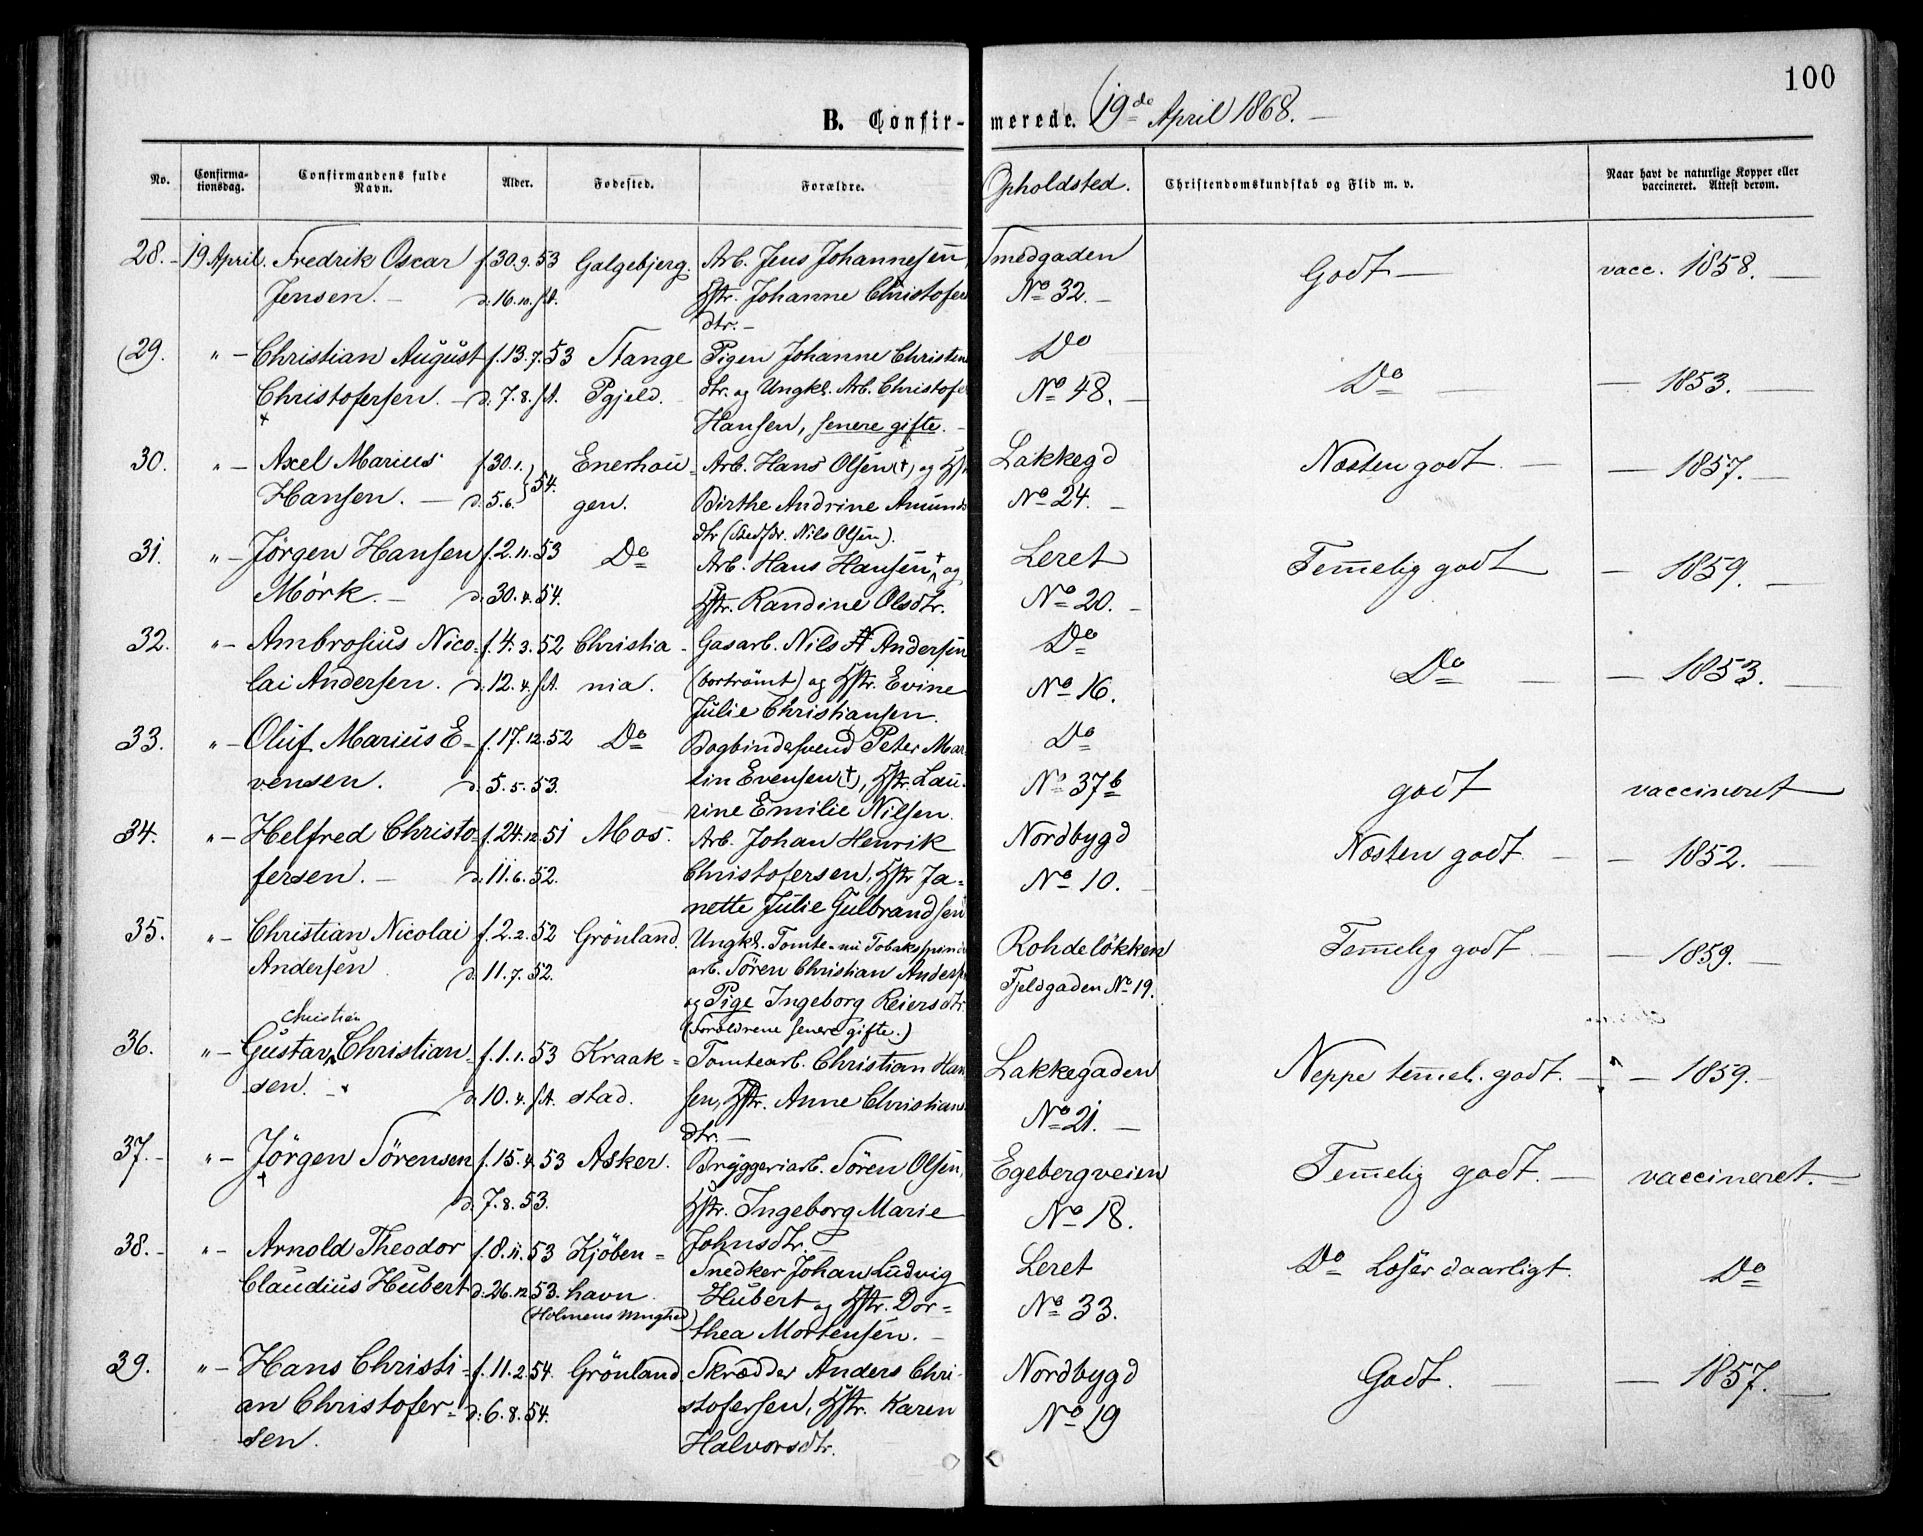 100
B. Confir-merede. 19de April 1868. —
No. Confirma-tionsdag. Confirmandens fulde Navn. Alder. Fødested. Forældre. Opholdsted. Christendomskundskab og Flid m. v. Naar havt de naturlige Kopper eller vaccineret. Attest derom.
28. - 19 April. Fredrik Oscar f. 30.9.53 Galgebjerg. Arb. Jens Johannesen, Smedgaden Godt — vacc. 1858. —
Jensen. — d. 16.10. s.A. Hstr. Johanne Christofers No 32. —
dtr. —
29. " — Christian August f. 13.7.53 Stange Pigen Johanne Christens Do Do — — 1853. —
Christofersen. — d. 7.8. s.A. Pgjeld. dtr. og Ungkl. Arb. Christofer No 48. —
Hansen, senere gifte. —
30. " — Axel Marius f. 30.1. Enerhou- Arb. Hans Olsen (†) og Hstr. Lakkegd Næsten godt. — — 1857. —
Hansen. — d. 5.6. 54. gen. Birthe Andrine Amunds No 24. —
dtr (Stedfdr. Nils Olsen).
31. " — Jörgen Hansen f. 2.11.53 Do Arb. Hans Hansen † og Leret Temmelig godt — 1859. —
Mörk. — d. 30.4.54. Hstr. Randine Olsdtr. No 20. —
32. " — Ambrosius Nico- f. 4.3.52 Christia- Gasarb. Nils Andersen Do Do — — 1853. —
lai Andersen. d. 12.4. s.A. nia. (bortrömt) og Hstr. Evine No 16.
Julie Christiansen.
33. " — Oluf Marius E- f. 17.12.52 Do Bogbindersvend Peter Mar- Do godt vaccineret
vensen. d. 5.5.53. tin Evensen (†), Hstr. Lau- No 37b
rine Emilie Nilsen.
34. " — Helfred Christo- f. 24.12.51 Mos. Arb. Johan Henrik Nordbygd Næsten godt. — — 1852. —
fersen. — d. 11.6.52. Christofersen, Hstr Ja- No 10. —
nette Julie Gulbrandsen
35. " — Christian Nicolai f. 2.2.52 Grönland. Ungkl. Tomte- nu Tobaksspinderi Rohdelökken Temmelig godt. — — 1859. —
Andersen d. 11.7.52. arb. Sören Christian Andersen Fjeldgaden No 19.
og Pige Ingeborg Reiersdtr.
(Forældrene senere gifte.)
Christian
36. " — Gustav Christian- f. 1.1.53 Kraak- Tomtearb. Christian Han Lakkegaden Neppe temmel. godt. — — 1859. —
sen. — d. 10.4. s.A. stad. sen, Hstr. Anne Christians No 21. —
dtr. —
37. — " — Jörgen Sörensen f. 15.4.53 Asker. Bryggeriarb. Sören Olsen, Egebergveien Temmelig godt. — vaccineret. —
d. 7.8.53. Hstr. Ingeborg Marie No 18.
Johnsdtr.
38. — " — Arnold Theodor f. 8.11.53 Kjöben- Snedker Johan Ludvig Leret Do Læser daarligt. Do
Claudius Hubert d. 26.12.53. havn. Hubert og Hstr. Dor- No 33.
(Holmens Mnghed) thea Mortensen. —
39. " — Hans Christi- f. 11.2.54. Grönland. Skrædder Anders Chri- Nordbygd Godt. — — 1857. —
an Christofer- d. 6.8.54. stofersen, Hstr. Karen No 19
sen. Halvorsdtr.